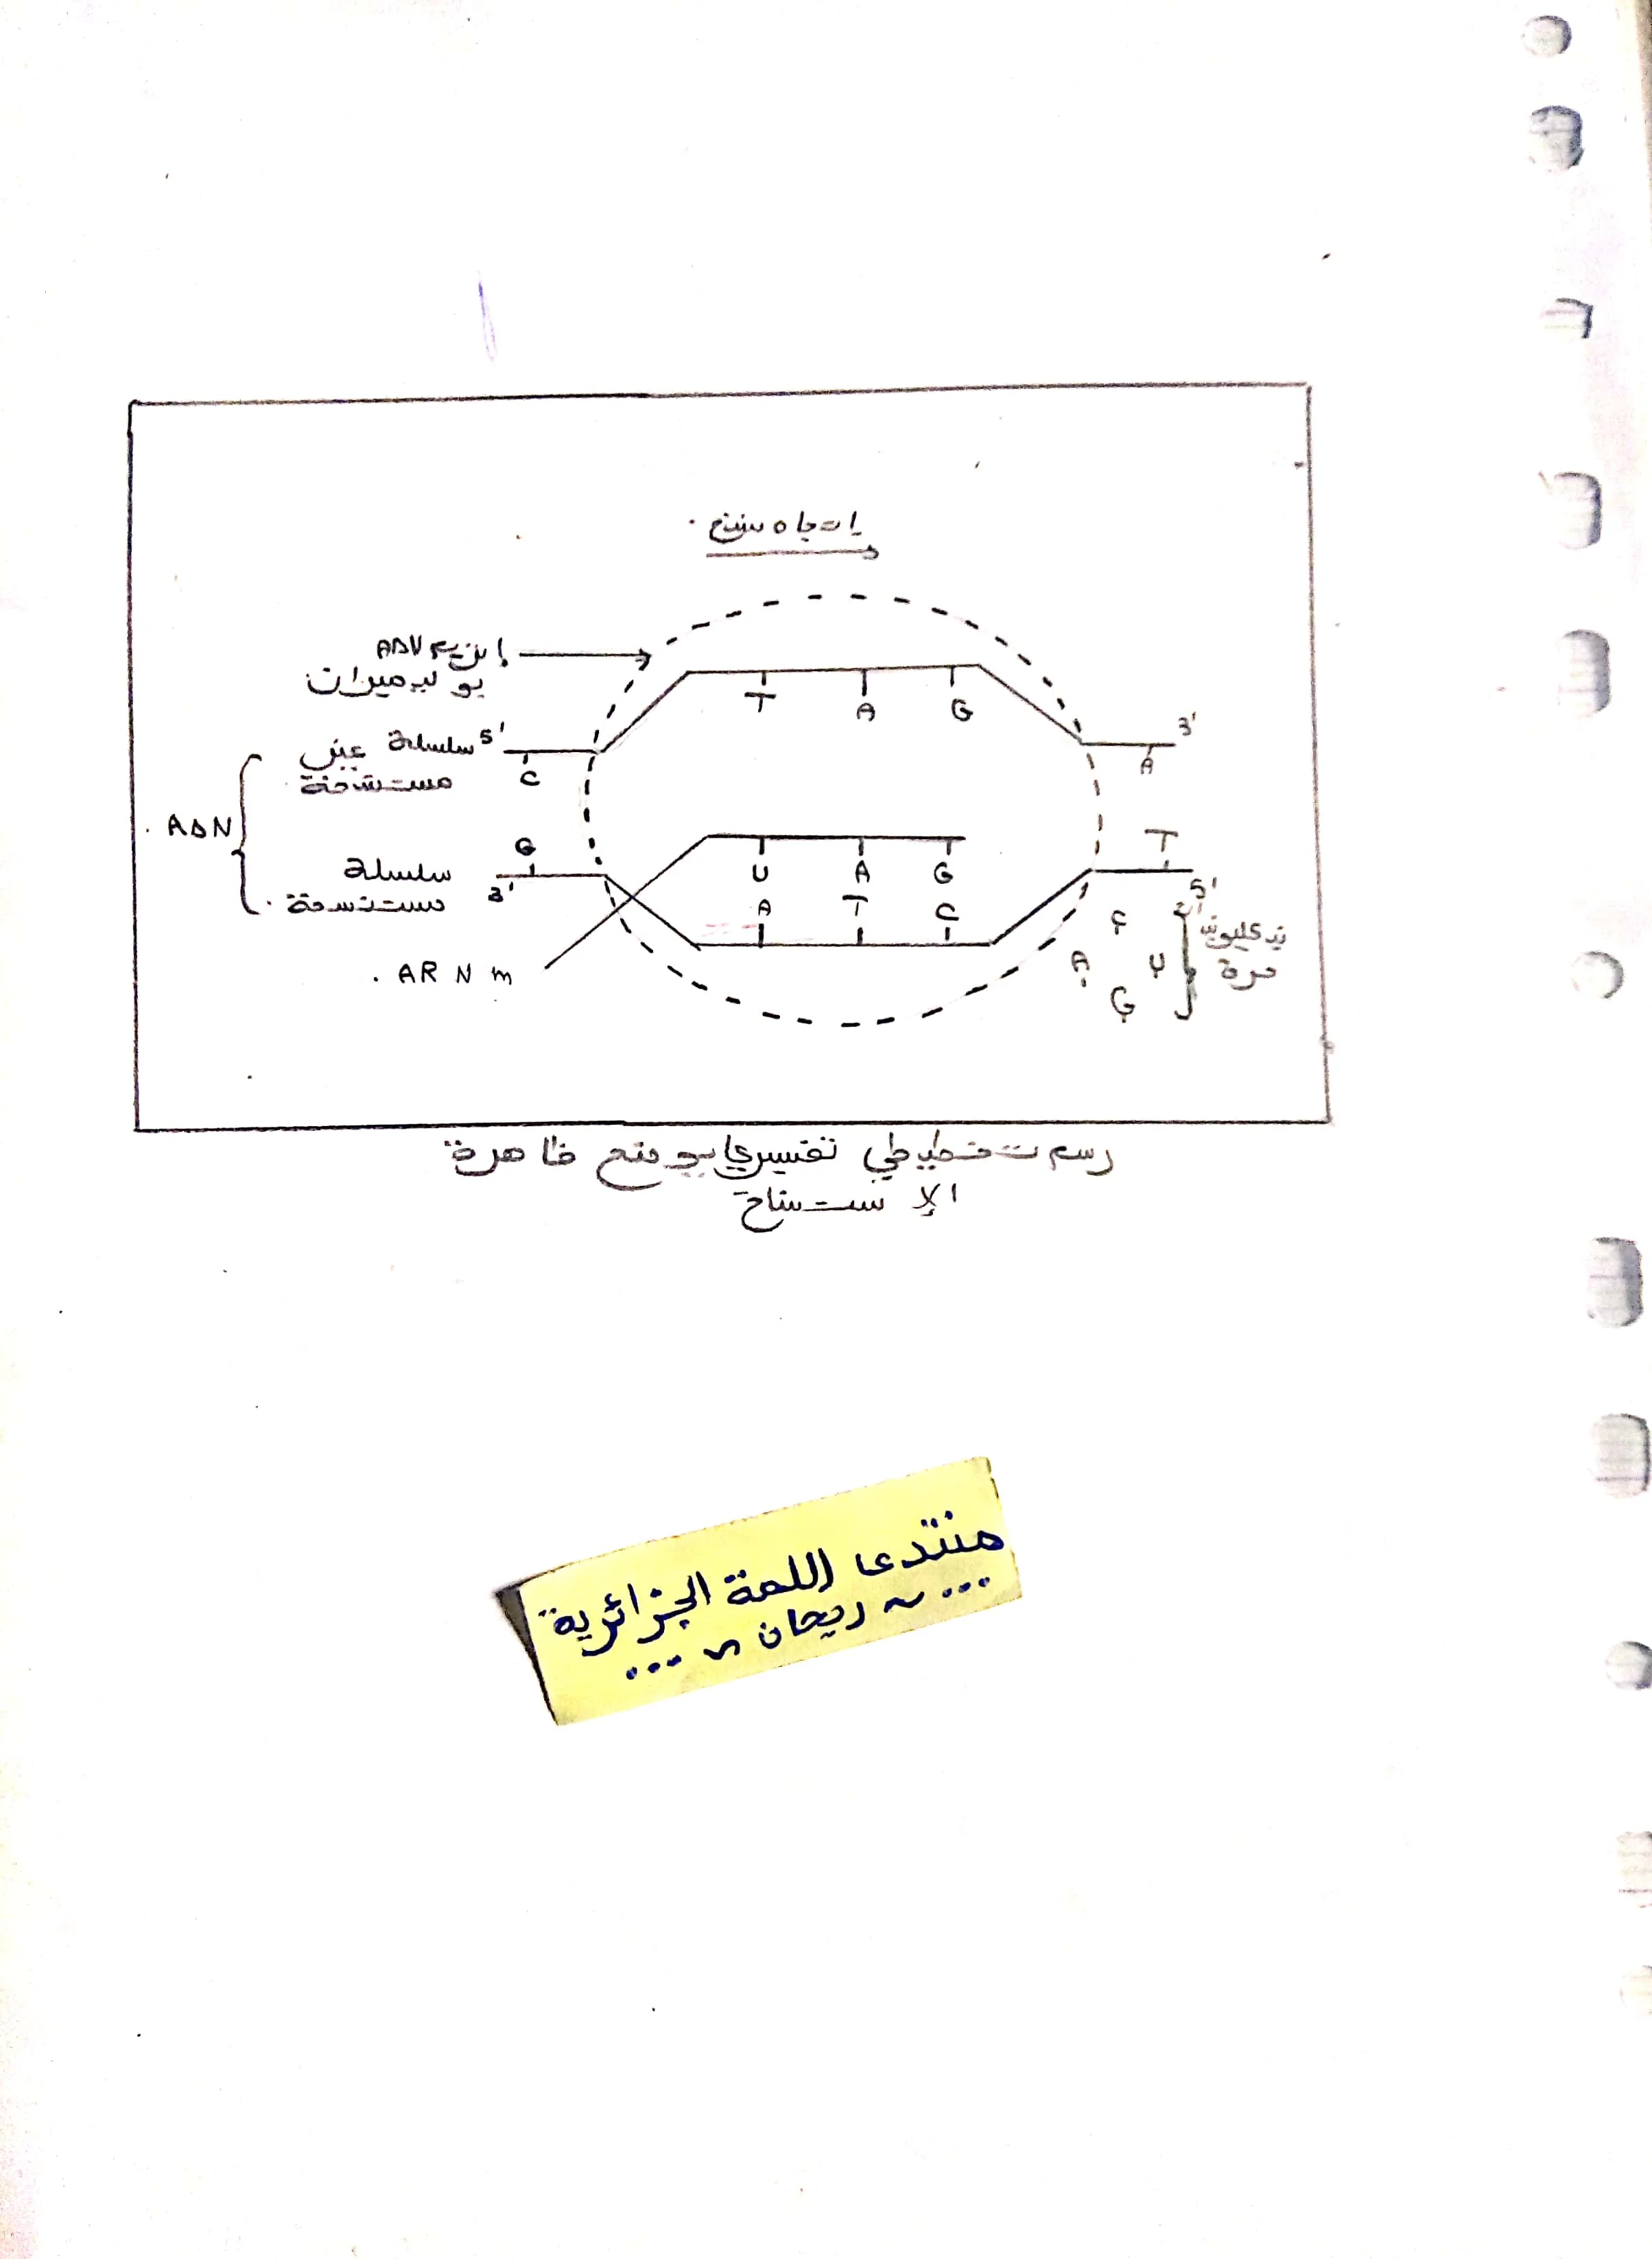 إتجاه النسخ .
إنزيم ADN
بوليميراز
T A G
سلسلة غير 5'
مستنسخة
C
3'
A
ADN
سلسلة
مستنسخة .
G
3'
U A G
A T C
T
5'
. ARN m
C
A U
G
نيوكليوتيدات
حرة
رسم تخطيطي تفسيري يوضح ظاهرة
الإستنساخ
منتدى اللمة الجزائرية
... ~ ريحان ~ ...